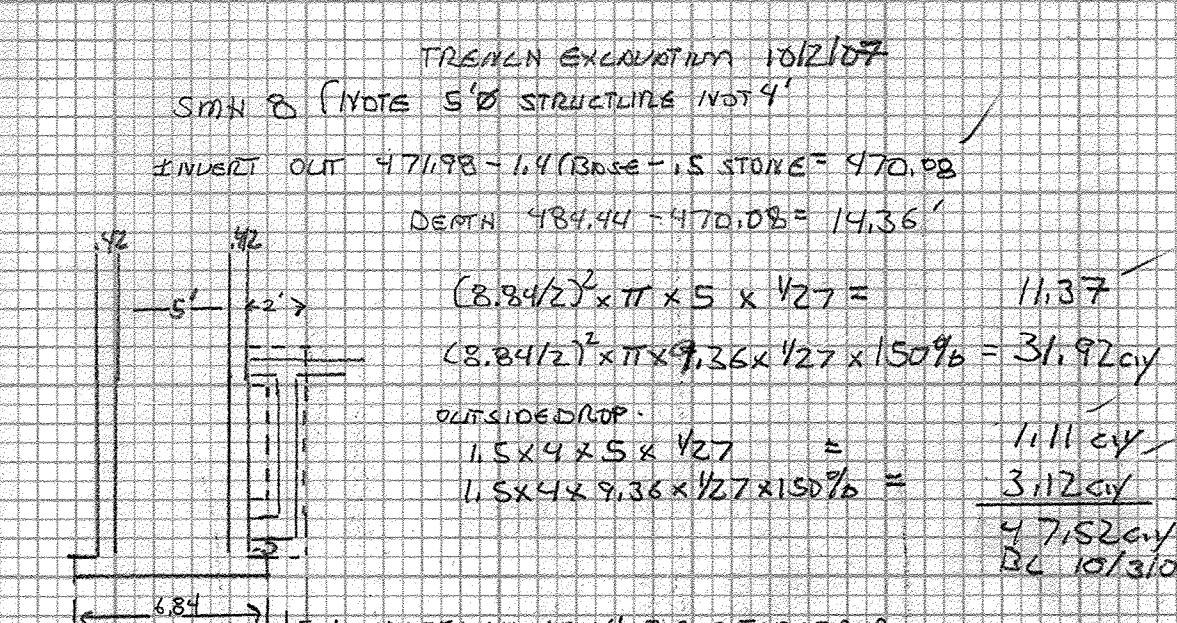 TRENCH EXCAVATION 10/2/07
SMH 8 (NOTE 5'Ø STRUCTURE NOT 4'
INVERT OUT 471.98 - 1.4 (BASE - .5 STONE = 470.08
DEPTH 484.44 - 470.08 = 14.36'
.42 .42
5' 2'
(8.84/2)² x π x 5 x 1/27 = 11.37
(8.84/2)² x π x 9.36 x 1/27 x 150% = 31.92 cy
OUTSIDE DROP.
1.5 x 4 x 5 x 1/27 = 1.11 cy
1.5 x 4 x 9.36 x 1/27 x 150% = 3.12 cy
47.52 cy
BL 10/3/0
6.84